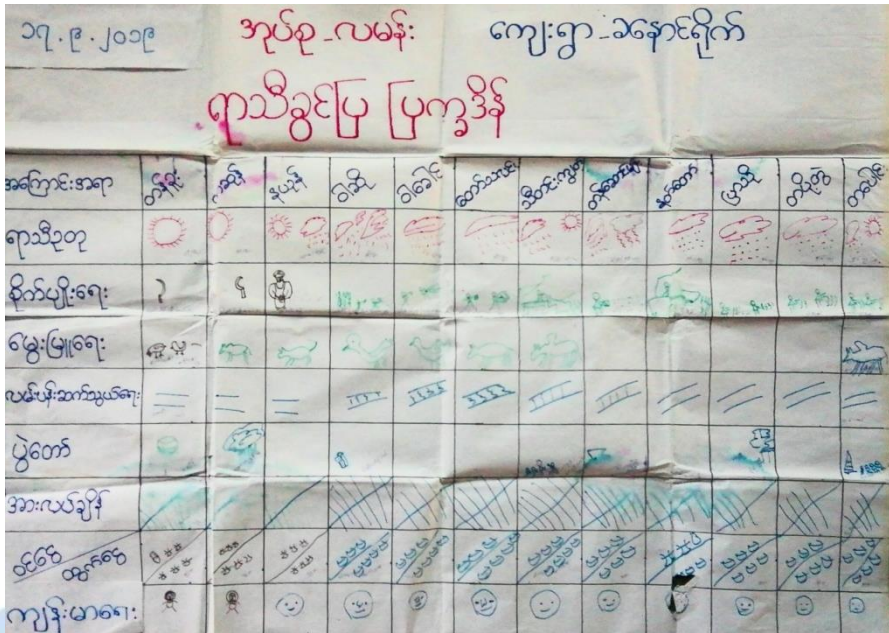 ၁၇.၉.၂၀၁၉
အုပ်စု-လမန်း ကျေးရွာ-ခနောင်ရိုက်
ရာသီခွင်ပြ ပြက္ခဒိန်
အကြောင်းအရာ တန်ခူး ကဆုန် နယုန် ဝါဆို ဝါခေါင် တော်သလင်း သီတင်းကျွတ် တန်ဆောင်မုန်း နတ်တော် ပြာသို တပို့တွဲ တပေါင်း
ရာသီဥတု
စိုက်ပျိုးရေး
မွေးမြူရေး
လမ်းပန်းဆက်သွယ်ရေး
ပွဲတော်
အားလပ်ချိန်
ဝင်ငွေ ထွက်ငွေ
ကျန်းမာရေး